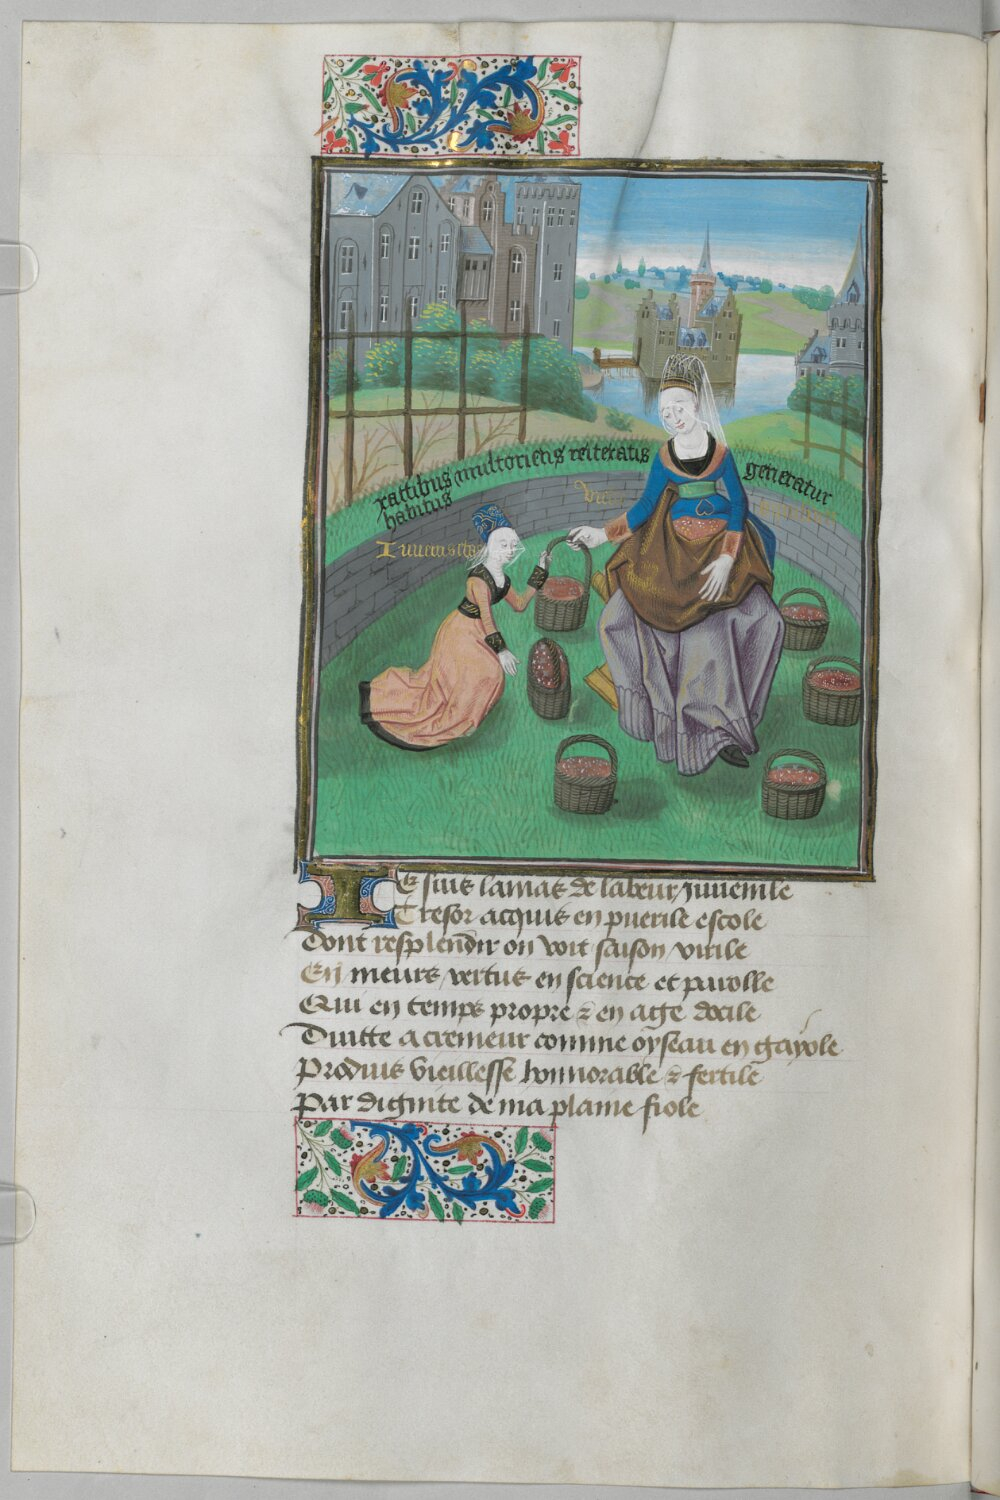 ex actibus multociens reiteratis generatur
habitus
Iuuenilis
Vir
Ie suis lamas de labeur juuenile
Tresor acquis en puerile escole
Dont resplendir on voit saison virile
En meurs vertus en science et parolle
Qui en temps propre & en age docile
Duitte a cremeur comme oyseau en gayole
Produis vieillesse honnorable & fertile
Par dignite de ma plaine fiole